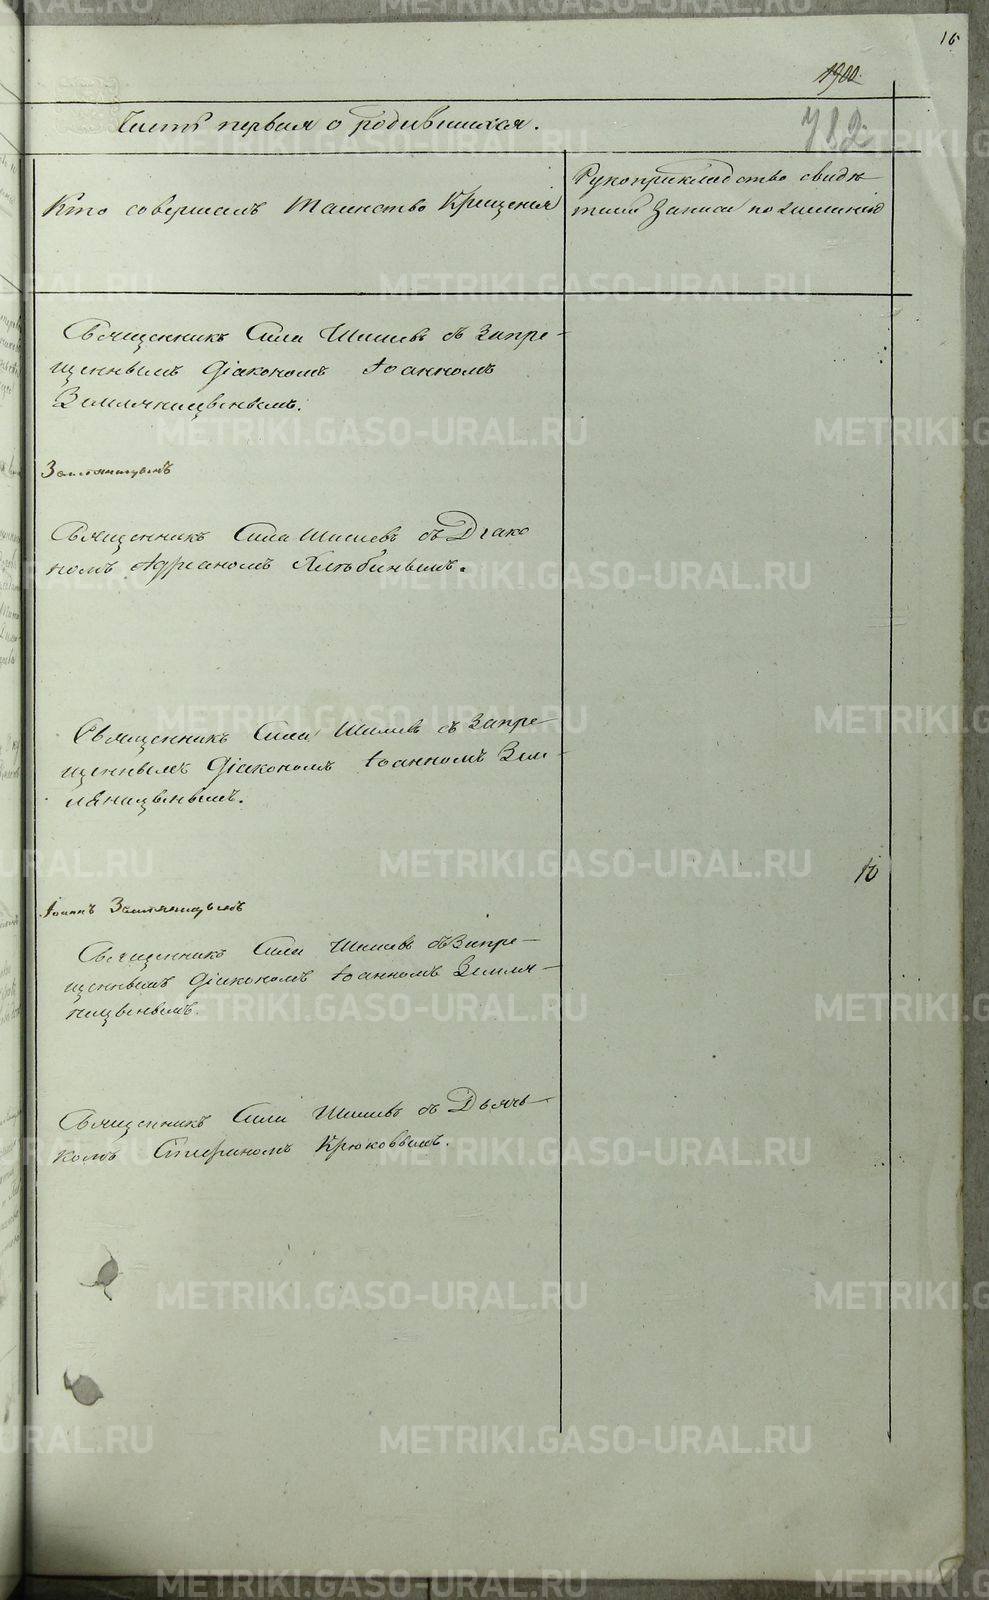 16
1900
Часть первая о родившихся.
782
Кто совершалъ Таинство Крещенія
Рукоприкладство свидѣ
телей записи по желанію
Священникъ Сила Шишевъ съ Запре-
щеннымъ Діакономъ Іоанномъ
Земляницынымъ.
Земляницынъ
Священникъ Сила Шишевъ съ Діако
номъ Адріаномъ Хлѣбинымъ.
Священникъ Сила Шишевъ съ Запре
щеннымъ Діакономъ Іоанномъ Зем-
ляницынымъ.
10
Іоаннъ Земляницынъ
Священникъ Сила Шишевъ съ Запре-
щеннымъ Діакономъ Іоанномъ Земля-
ницынымъ.
Священникъ Сила Шишевъ съ Дьяч-
комъ Крюковымъ.
METRIKI.GASO-URAL.RU